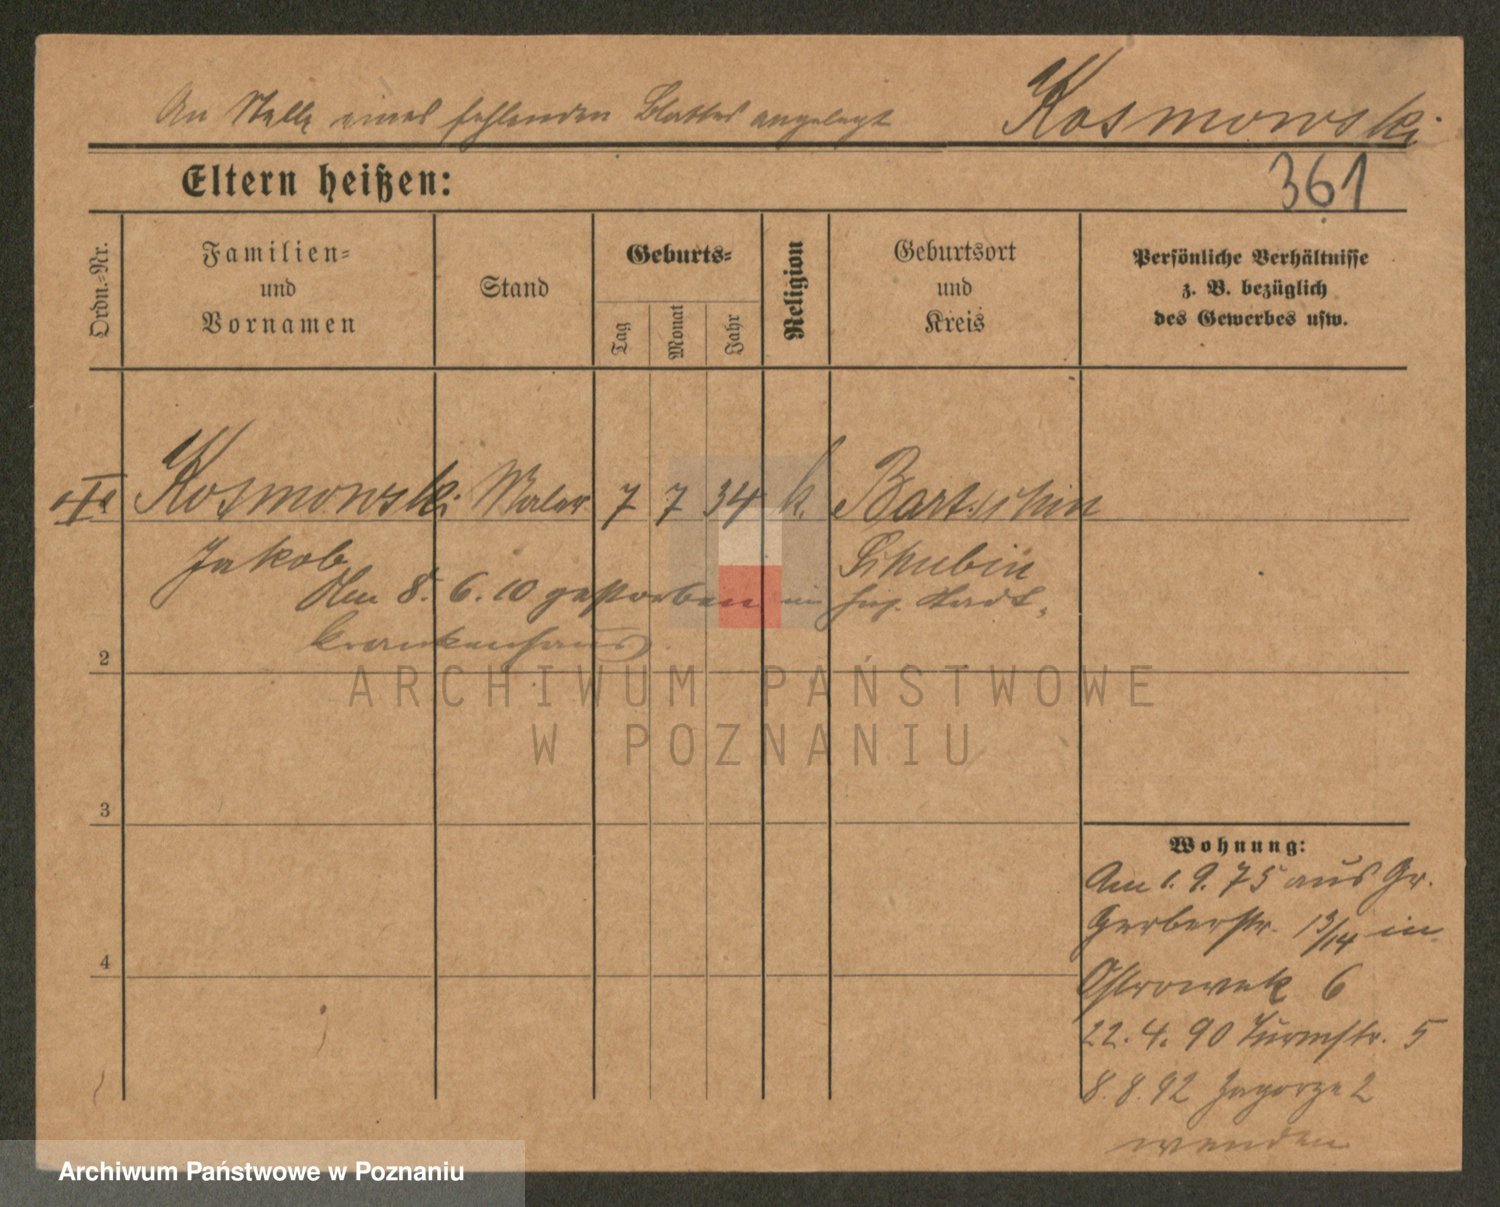 An Stelle eines fehlenden Blattes angelegt
Kosmowski
Eltern heißen:
361
Ordn.-Nr.
Familien-
und
Vornamen
Stand
Geburts-
Tag
Monat
Jahr
Religion
Geburtsort
und
Kreis
Persönliche Verhältnisse
z. B. bezüglich
des Gewerbes usw.
Kosmowski Maler 7 7 34 k. Bartschin
Jakob Schubin
Am 8. 6. 10 gestorben im hies. Stadt-
krankenhaus
2
3
4
Wohnung:
Am 1. 9. 75 aus Gr.
Gerberstr. 13/14 in
Ostrowek 6
22. 4. 90 Turmstr. 5
8. 8. 92 Zagorze 2
wenden
ARCHIWUM PAŃSTWOWE
W POZNANIU
Archiwum Państwowe w Poznaniu